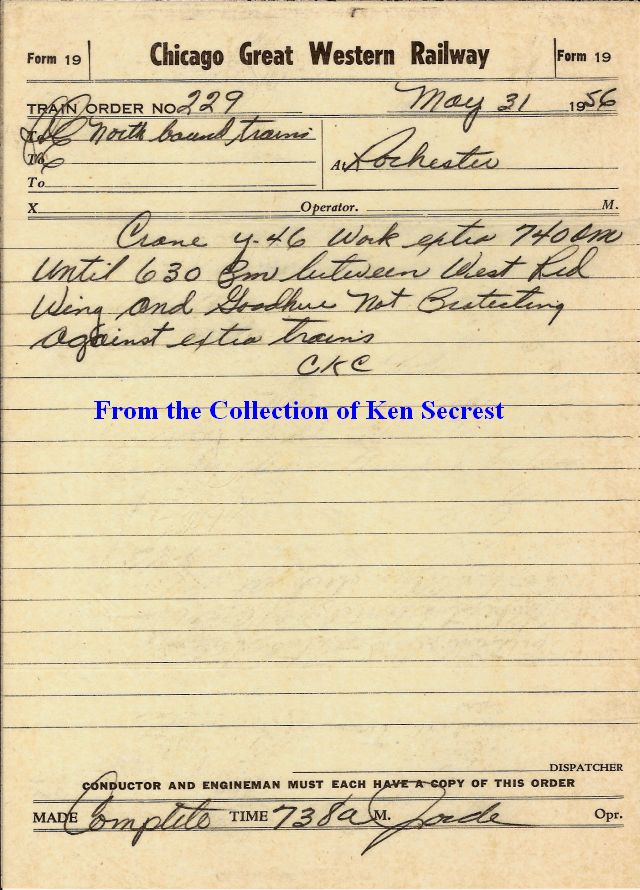 Form 19 Chicago Great Western Railway Form 19
TRAIN ORDER NO. 229 May 31 1956
To C&E North bound trains
To At Rochester
To
X Operator. M.
Crane Y-46 Work extra 740 am
Until 630 Pm between West Red
Wing and Goodhue Not Protecting
against extra trains
CKC
From the Collection of Ken Secrest
DISPATCHER
CONDUCTOR AND ENGINEMAN MUST EACH HAVE A COPY OF THIS ORDER
MADE Complete TIME 738a M. Opr.